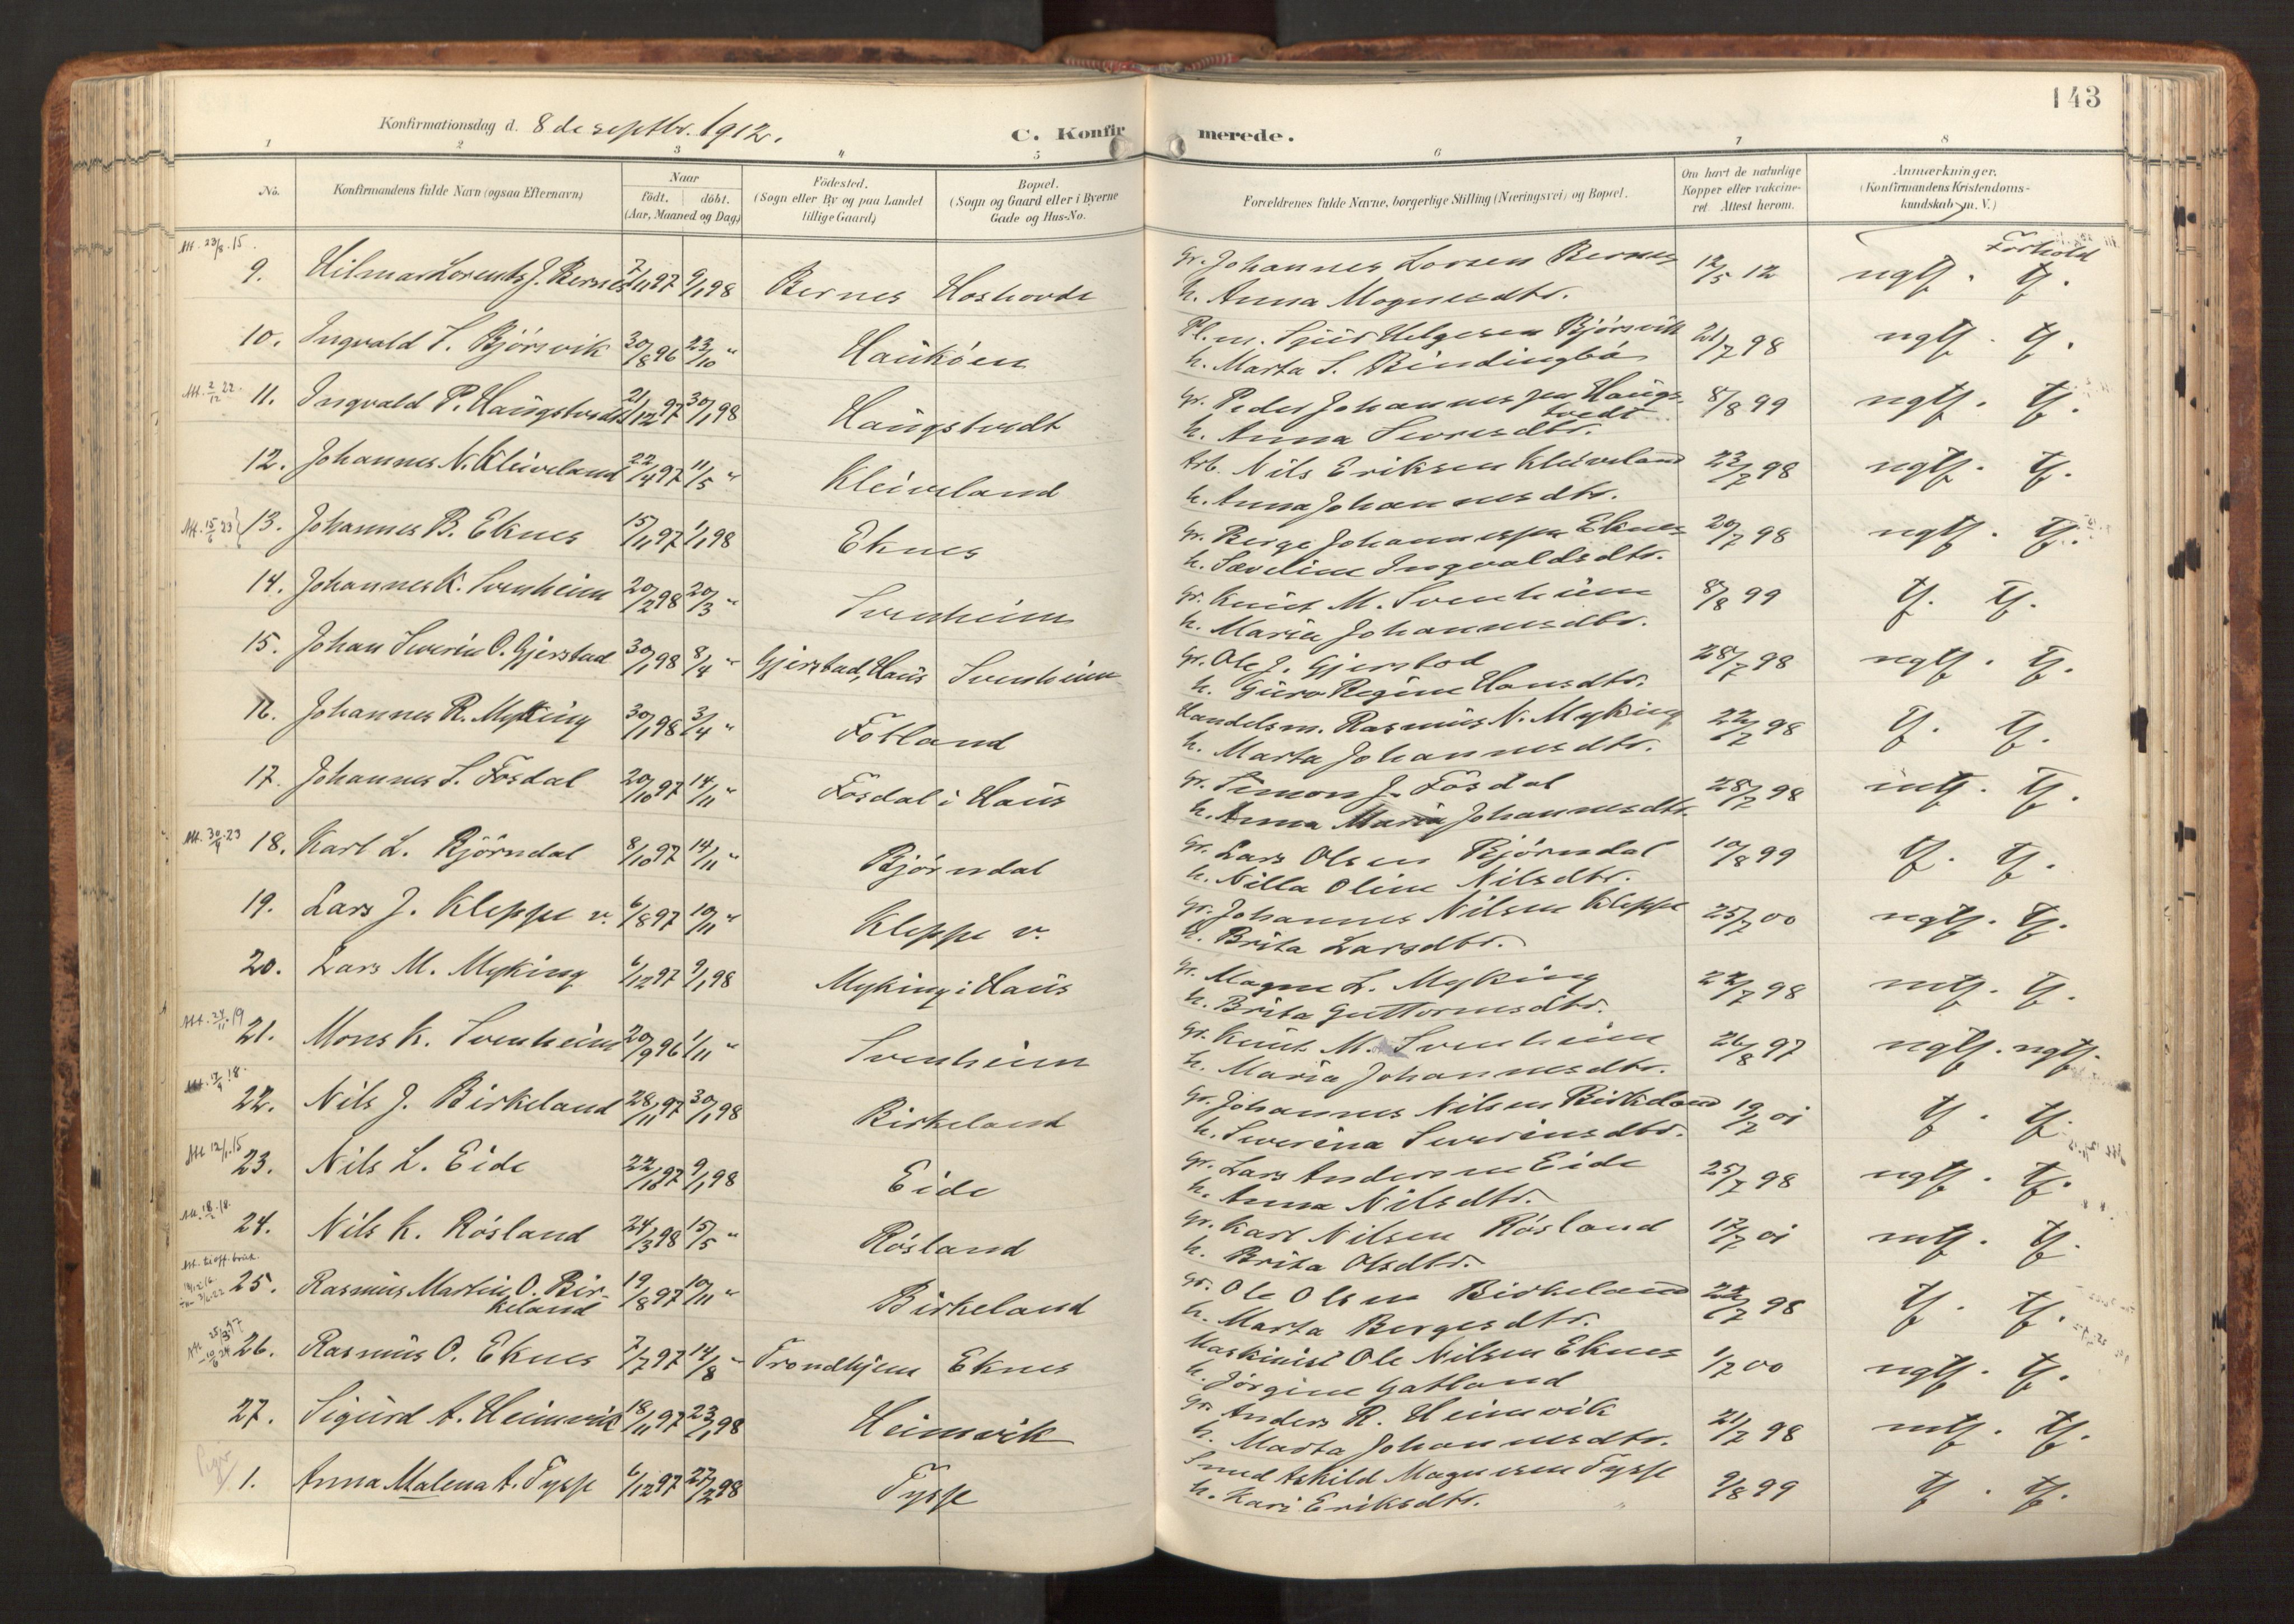 143
Konfirmationsdag d. 8de septbr. 1912.
C. Konfirmerede.
1 2 3 4 5 6 7 8
No.
Konfirmandens fulde Navn (ogsaa Efternavn)
Naar
födt. döbt.
(Aar, Maaned og Dag)
Födested.
(Sogn eller By og paa Landet
tillige Gaard)
Bopæl.
(Sogn og Gaard eller i Byerne
Gade og Hus-No.
Forældrenes fulde Navne, borgerlige Stilling (Næringsvei) og Bopæl.
Om havt de naturlige
Kopper eller vakcine-
ret Attest herom.
Anmærkninger.
(Konfirmandens Kristendoms-
kundskab m. V.)
Forhold
Att. 23/8.15.
9. Hilmar Lorents J. Bernes 7/11 97 9/1 98 Bernes Hoshovde Gr. Johannes Larsen Bernes 12/5 12 ngtf. tf.
h. Anna Magnesdtr.
10. Ingvald S. Bjørsvik 30/8 96 23/10 " Haukøen Pl.m. Sjur Helgesen Bjørsvik 21/7 98 ngtf. tf.
h. Marta S. Bindingbø
Att. 2/12 22.
11. Ingvald P. Haugstvedt 21/12 97 30/1 98 Haugstvedt Gr. Peder Johannessen Haugs- 8/8 99 ngtf. tf.
tvedt
h. Anna Sverresdtr.
12. Johannes N. Kleiveland 22/4 97 11/5 " Kleiveland Arb. Nils Eriksen Kleiveland 23/7 98 ngtf. tf.
h. Anna Johannesdtr.
Att. 15/6 23
13. Johannes B. Eknes 15/11 97 1/1 98 Eknes Gr. Berge Johannessen Eknes 20/7 98 ngtf. tf.
h. Sæveline Ingvaldsdtr.
14. Johannes K. Svenheim 20/2 98 20/3 " Svenheim Gr. Knut M. Svenheim 8/8 99 tf. tf.
h. Maria Johannesdtr.
15. Johan Severin O. Gjerstad 30/1 98 8/4 " Gjerstad, Haus Svenheim Gr. Ole J. Gjerstad 28/7 98 ngtf. tf.
h. Guro Regine Hansdtr.
16. Johannes R. Myking 30/1 98 3/4 " Fotland Handelsm. Rasmus N. Myking 22/7 98 tf. tf.
h. Marta Johannesdtr.
17. Johannes S. Fosdal 20/10 97 14/11 " Fosdal i Haus Gr. Simon J. Fosdal 28/7 98 mtf. tf.
h. Anna Maria Johannesdtr.
Att. 30/4.23
18. Karl L. Bjørndal 8/10 97 14/11 " Bjørndal Gr. Lars Olsen Bjørndal 10/8 99 tf. tf.
h. Nilla Oline Nilsdtr.
19. Lars J. Kleppe v. 6/8 97 10/11 " Kleppe v. Gr. Johannes Nilsen Kleppe 25/7 00 ngtf. tf.
h. Brita Larsdtr.
20. Lars M. Myking 6/12 97 9/1 98 Myking i Haus Gr. Magne L. Myking 22/7 98 mtf. tf.
h. Brita Guttormsdtr.
Att. 24/11.19
21. Mons K. Svenheim 20/9 96 1/11 " Svenheim Gr. Knut M. Svenheim 26/8 97 ngtf. ngtf.
h. Maria Johannesdtr.
22. Nils J. Birkeland 28/11 97 30/1 98 Birkeland Gr. Johannes Nilsen Birkeland 19/7 01 tf. tf.
h. Severina Severinsdtr.
Att 12/1.15
23. Nils L. Eide 22/10 97 9/1 98 Eide Gr. Lars Andersen Eide 25/7 98 ngtf. tf.
h. Anna Nilsdtr.
Att. 18/2.18.
24. Nils K. Røsland 24/3 98 15/5 " Røsland Gr. Karl Nilsen Røsland 17/7 01 mtf. tf.
h. Brita Olsdtr.
25. Rasmus Martin O. Bir- 19/8 97 10/11 " Birkeland Gr. Ole Olsen Birkeland 22/7 98 tf. tf.
keland
h. Marta Bergesdtr.
26. Rasmus O. Eknes 7/7 97 14/8 " Trondhjem Eknes Maskinist Ole Nilsen Eknes 1/7 00 ngtf. tf.
h. Jørgine Gatland
27. Sigurd A. Heimvik 18/11 97 23/1 98 Heimvik Gr. Anders R. Heimvik 21/7 98 mtf. tf.
h. Marta Johannesdtr.
1. Anna Malena A. Tysse 6/12 97 27/2 98 Tysse Smed Askild Magnesen Tysse 9/8 99 tf. tf.
h. Kari Eriksdtr.